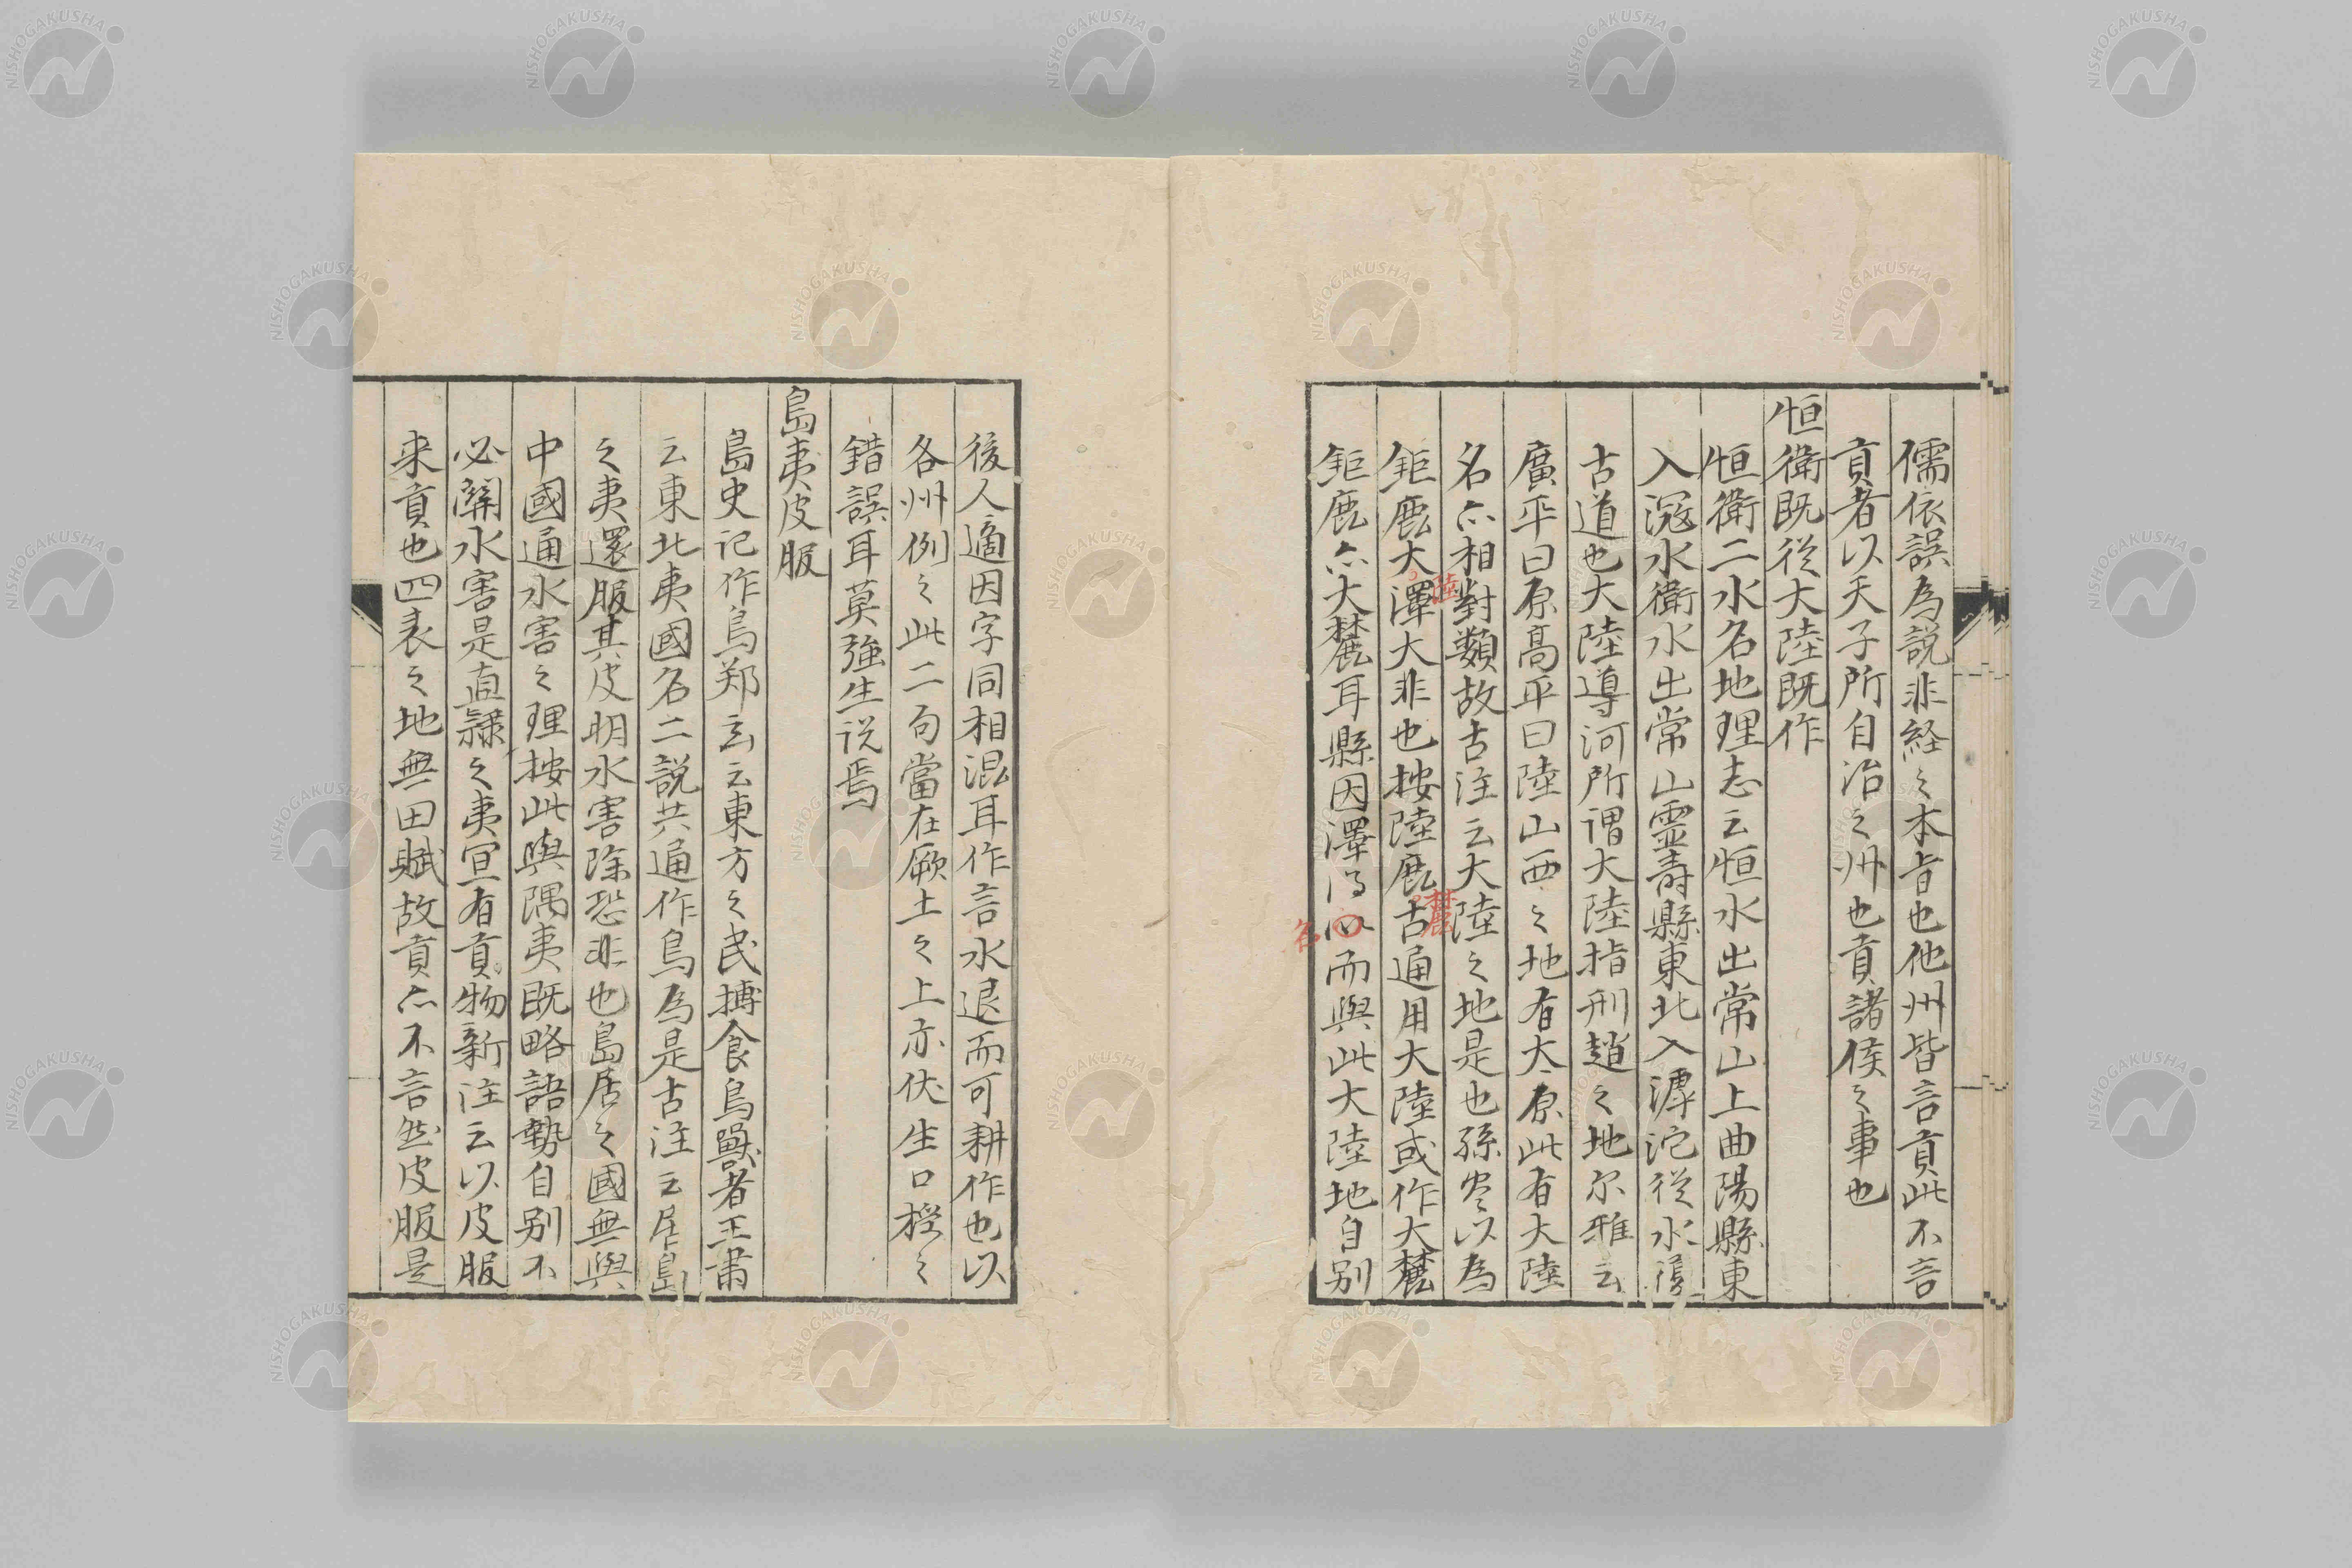 儒依誤為説非経之本旨也他州皆言貢此不言
貢者以天子所自治之州也貢諸侯之事也
恒衛既從大陸既作
恒衛二水名地理志云恒水出常山上曲陽縣東
入滱水衛水出常山霊壽縣東北入滹沱從水復
古道也大陸導河所謂大陸指刑趙之地尔雅云
廣平曰原高平曰陸山西之地有太原此有大陸
名亦相對類故古注云大陸之地是也孫炎以為
鉅鹿大澤大非也按陸鹿古通用大陸或作大麓
陸
麓
鉅鹿亦大麓耳縣因澤得以而與此大陸地自别
名
後人適因字同相混耳作言水退而可耕作也以
各州例之此二句當在厥土之上亦伏生口授之
錯誤耳莫強生说焉
島夷皮服
島史记作鳥郑玄云東方之民搏食鳥獸者王肅
云東北夷國名二説共通作鳥為是古注云居島
之夷還服其皮明水害除恐非也島居之國無與
中國通水害之理按此與隅夷既略語勢自别不
必關水害是直隷之夷宜有貢物新注云以皮服
来貢也四表之地無田賦故貢亦不言然皮服是
NISHOGAKUSHA